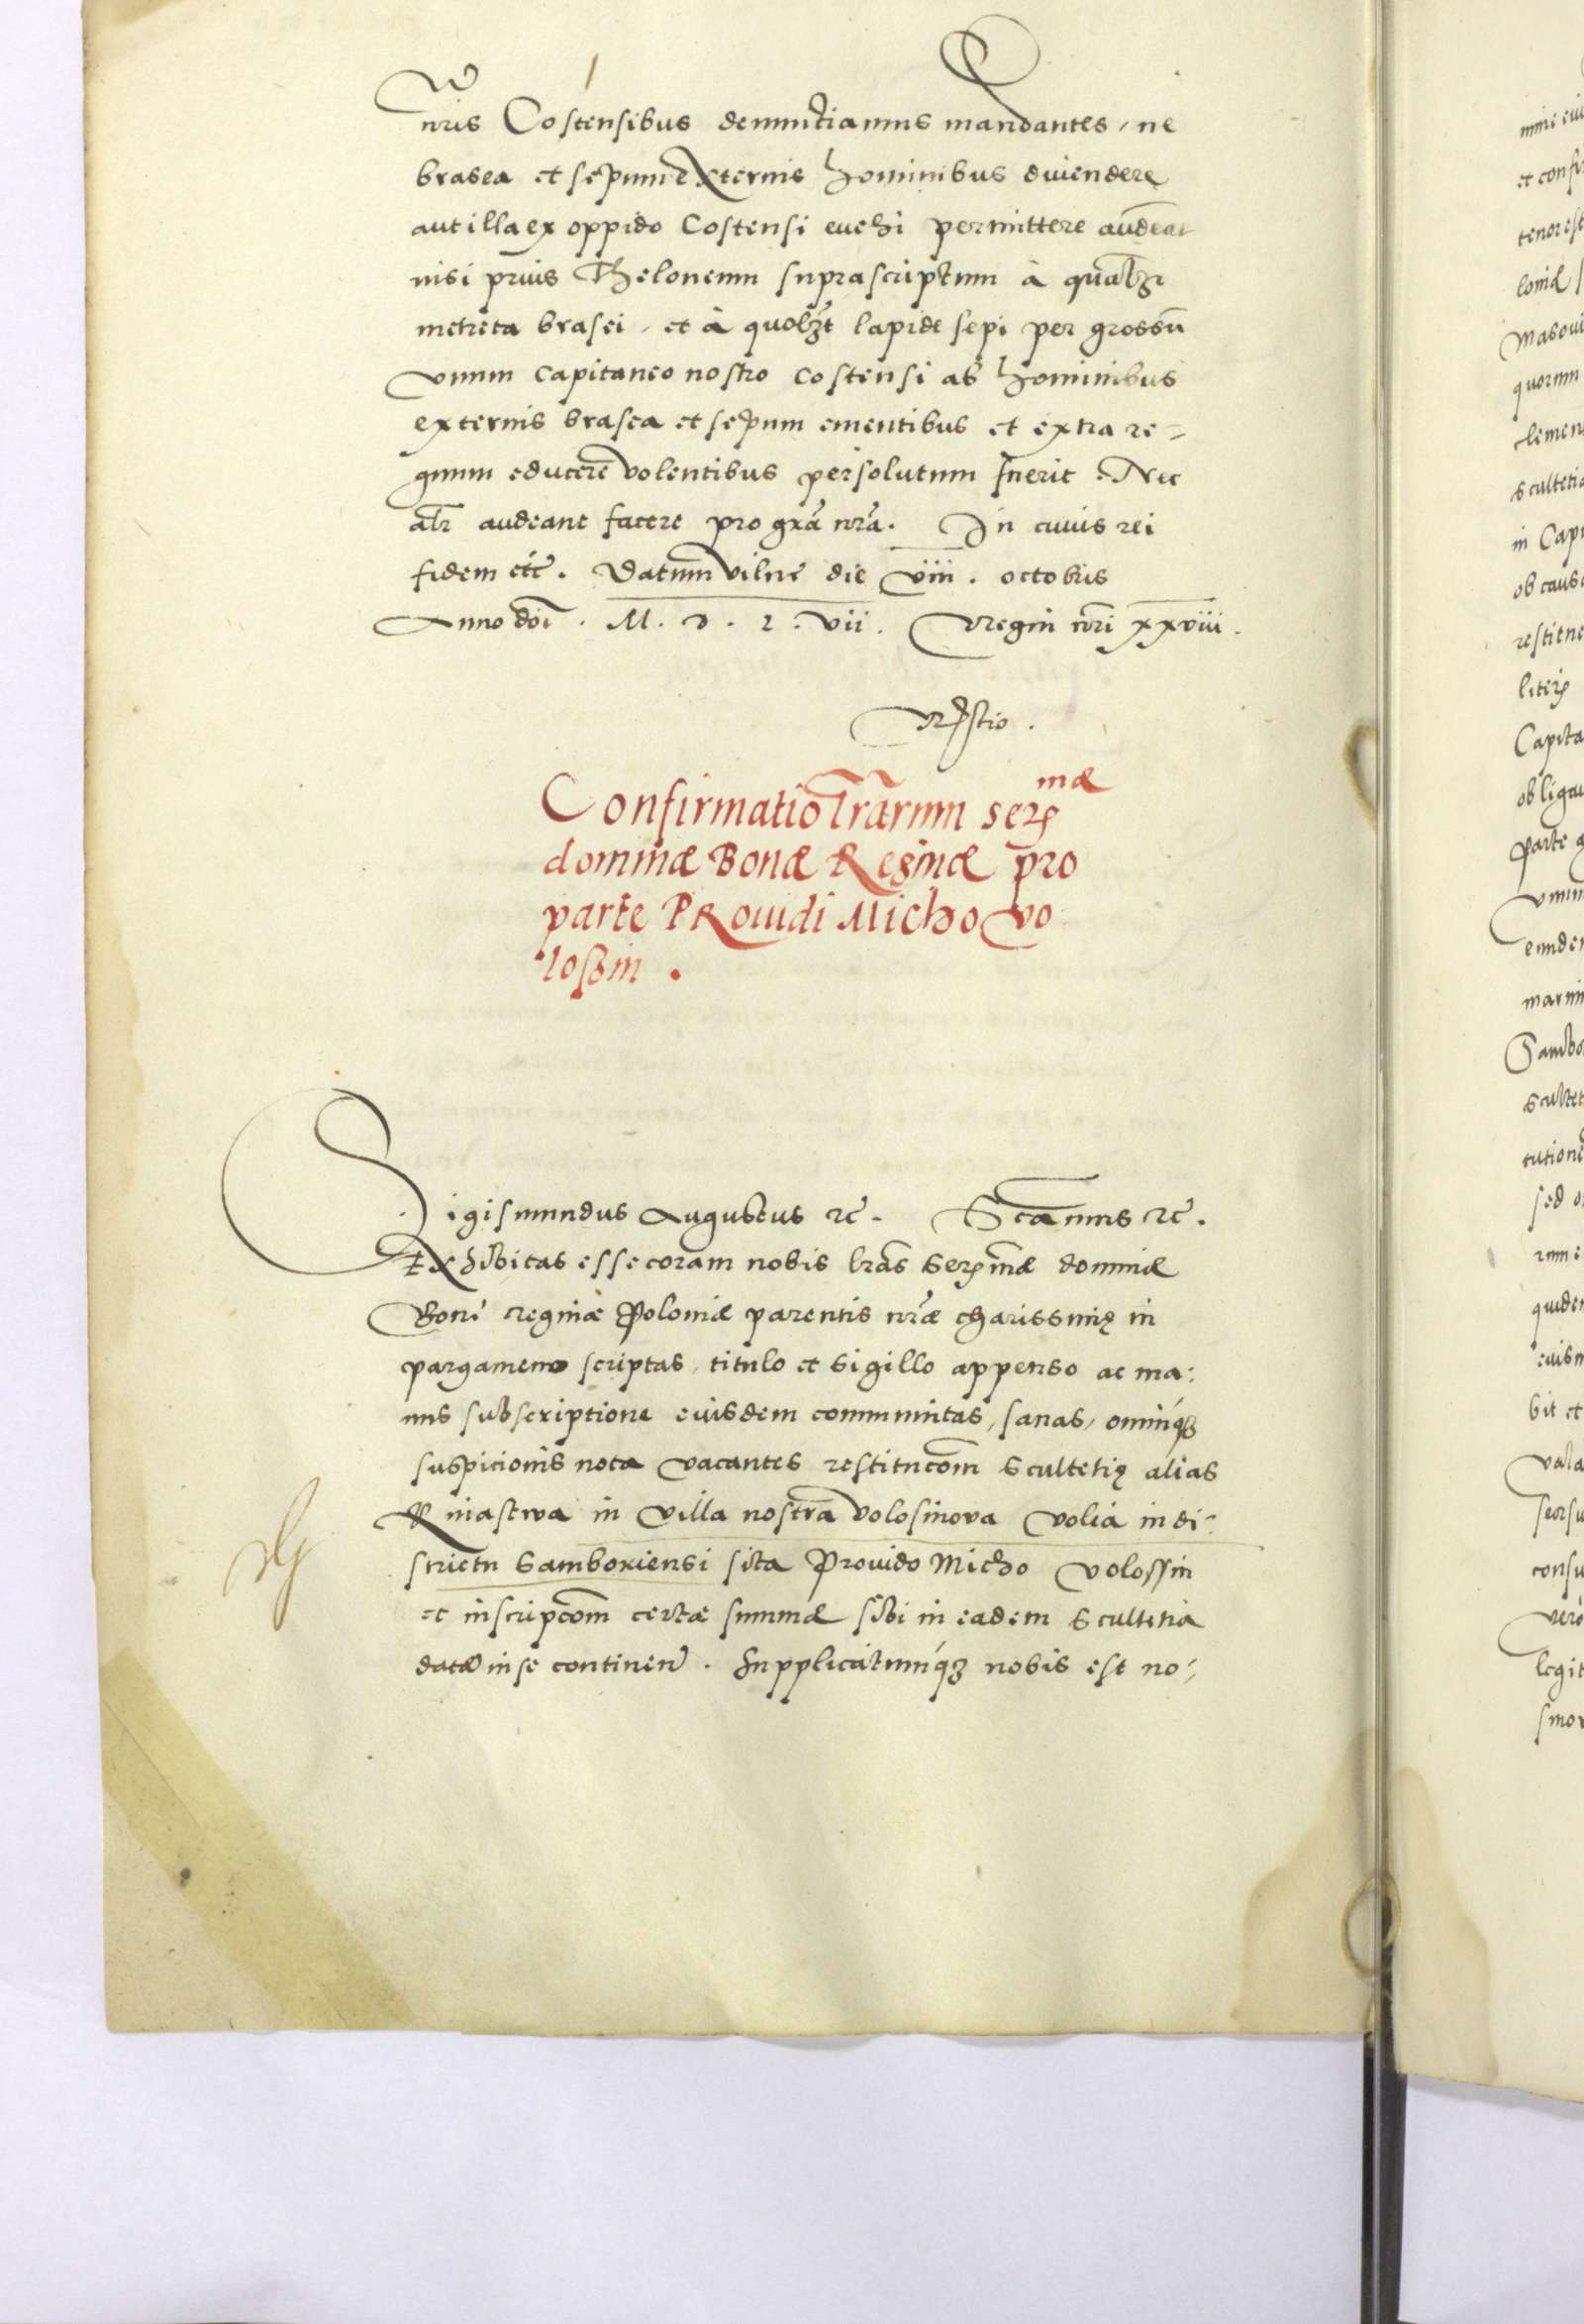 nr̃is Costensibus denunctiamus mandantes, ne
brasea et sepum externis hominibus diuendere
aut illa ex oppido Costensi euehi permittere audeãt
nisi prius Theloneum suprascriptum à qual3t
metreta brasei, et à quol3t lapide sepi per grossũ
vnum Capitaneo nostro Costensi ab hominibus
externis brasea et sepum ementibus et extra re=
gnum educere volentibus persolutum fuerit. Nec
alr̃ audeant facere pro gr̃a nr̃a. In cuius rei
fidem etc̃. Datum vilnę die viii. octobris
Anno dñi. M. D. L. vii. Regni nr̃i xxviii.
Confirmatio lr̃arum Ser mæ
dominæ Bonæ Reginæ pro
parte PRouidi Micho vo
loßin.
Sigismundus Augustus etc̃. Sc̃amus etc̃.
Exhibitas esse coram nobis lr̃as Ser mæ dominæ
Bonę reginæ Poloniæ parentis nr̃æ charissimę in
pargameno scriptas, titulo et sigillo appenso ac ma:
nus subscriptione eiusdem communitas, sanas, omniq3
suspicionis nota vacantes restitucõm scultetię alias
Kniastwa in villa nostra volosinova volia in di:
strictu Samboriensi sita Prouido Micho volossin
et inscripcõm certæ summæ sibi in eadem scultetia
datæ in se continen̄. Supplicatumq3 nobis est no=
mine eiu
et confi
tenor est
loniæ
Masoui
quorum
clemen
scultetia
in Capi
ob causa
restitue
literis
Capita
obligau
parte
vnum
eundem
Sambo
scultet
tution
sed
quidem
bit et
vala
consu
vero
legit